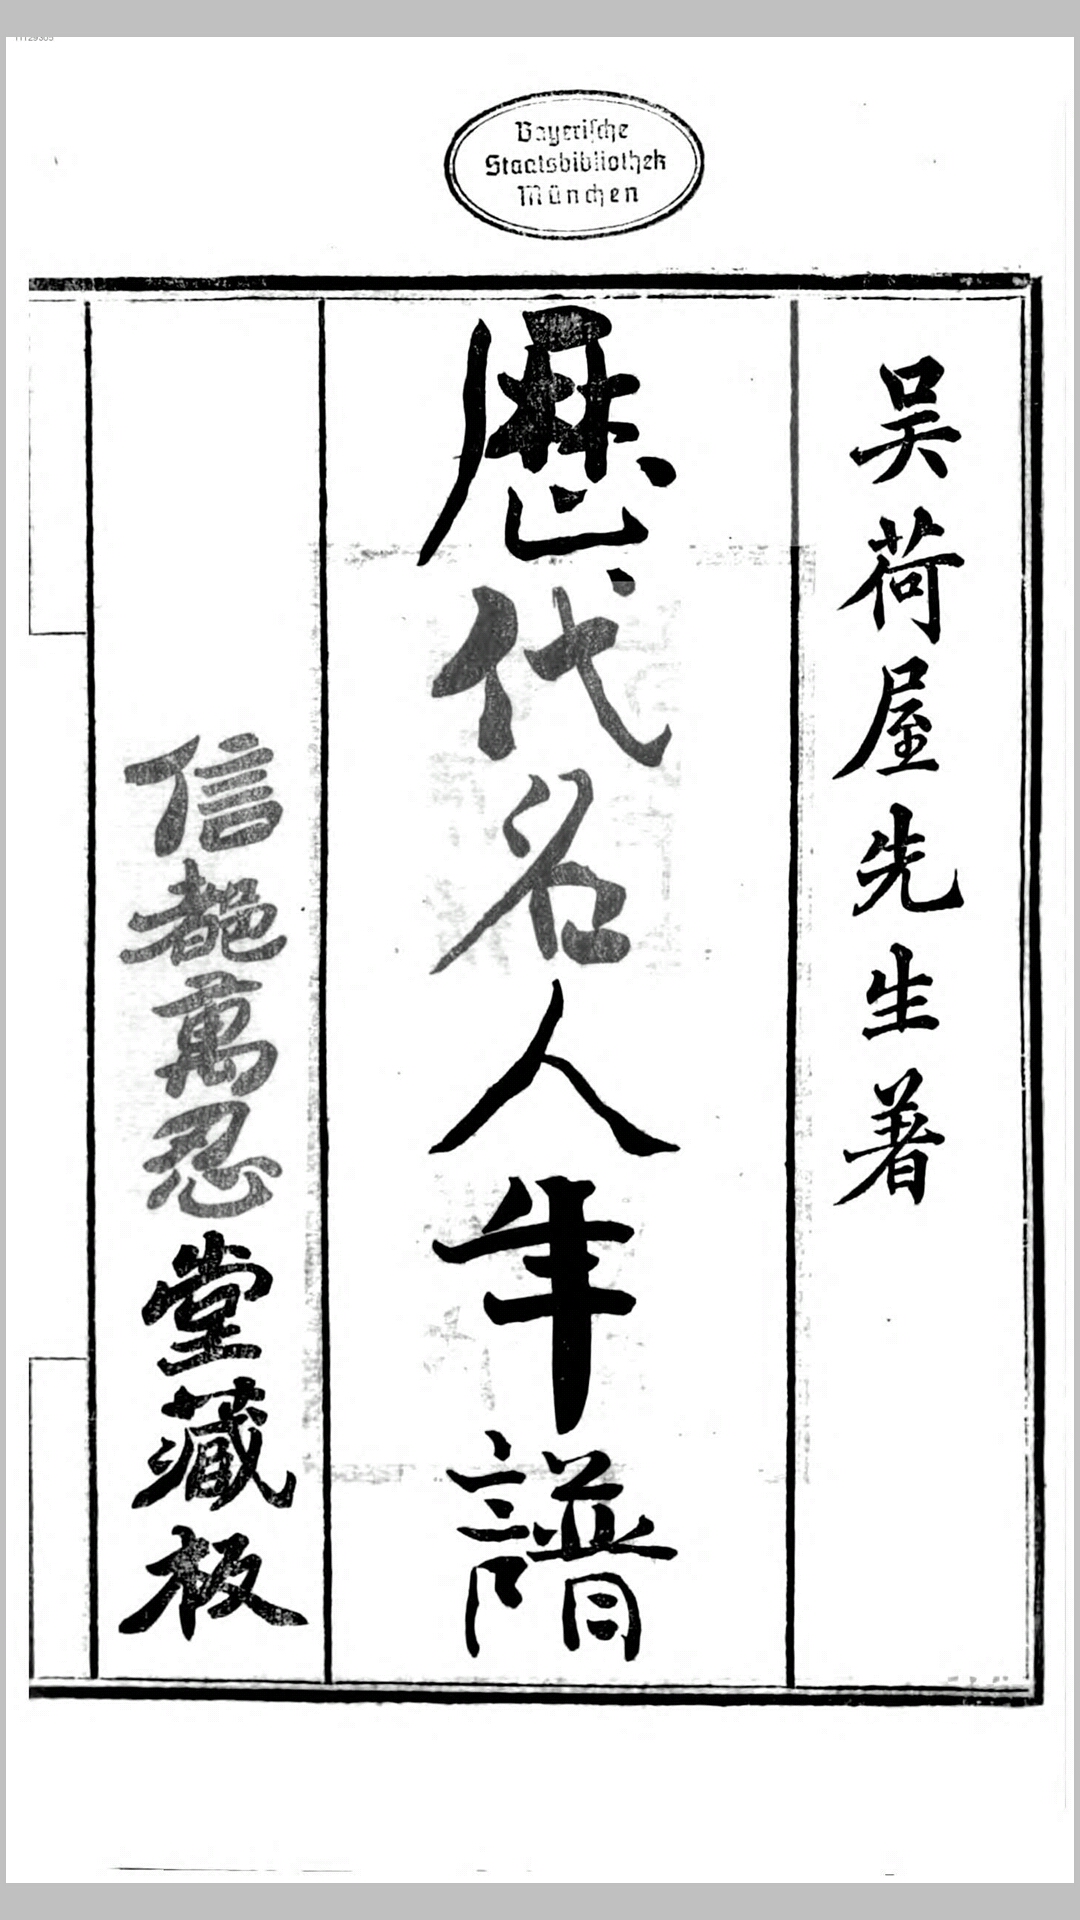 Bayerische
Staatsbibliothek
München
吴荷屋先生著
歷代名人年譜
信都萬忍堂藏板